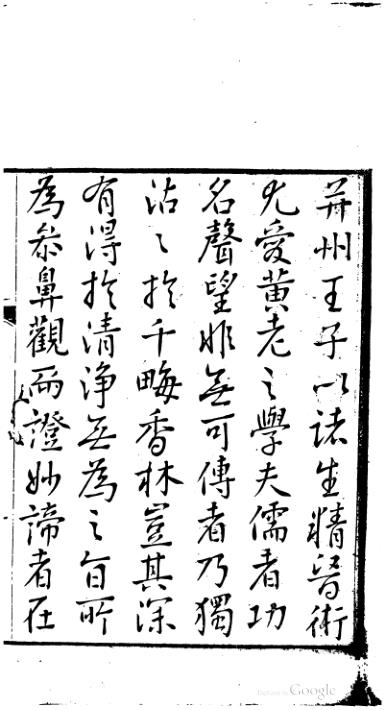 并州王子以諸生精醫術
尤愛黃老之學夫儒者功
名聲望非無可傳者乃獨
沾〻於千畮香林豈其深
有得於清淨無為之旨所
為叅鼻觀而證妙諦者在
Digitized by Google